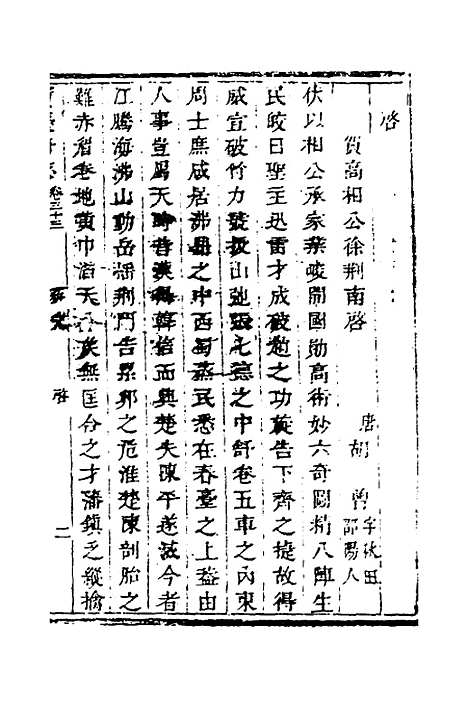 啓
賀高相公徐荆南啓
唐胡曾字秋田邵陽人
伏以相公承家業峻開國勋高術妙六奇圖精八陣生
民皎日聖主迅雷才成破趙之功旋告下齊之捷故得
威宣破竹力拔山弛張七德之中舒卷五車之內東
周士庶咸居沸之中西蜀蒸民悉在春臺之上益由
人事豈爲天時昔漢韓信而與楚失陳平遂滅今者
江騰海沸山動岳揺荆門告累卵之危淮楚陳剖胎之
難赤眉奉地黄巾滔天矣無匡合之才藩鎮乏縱擒
卷三十三
啓
二